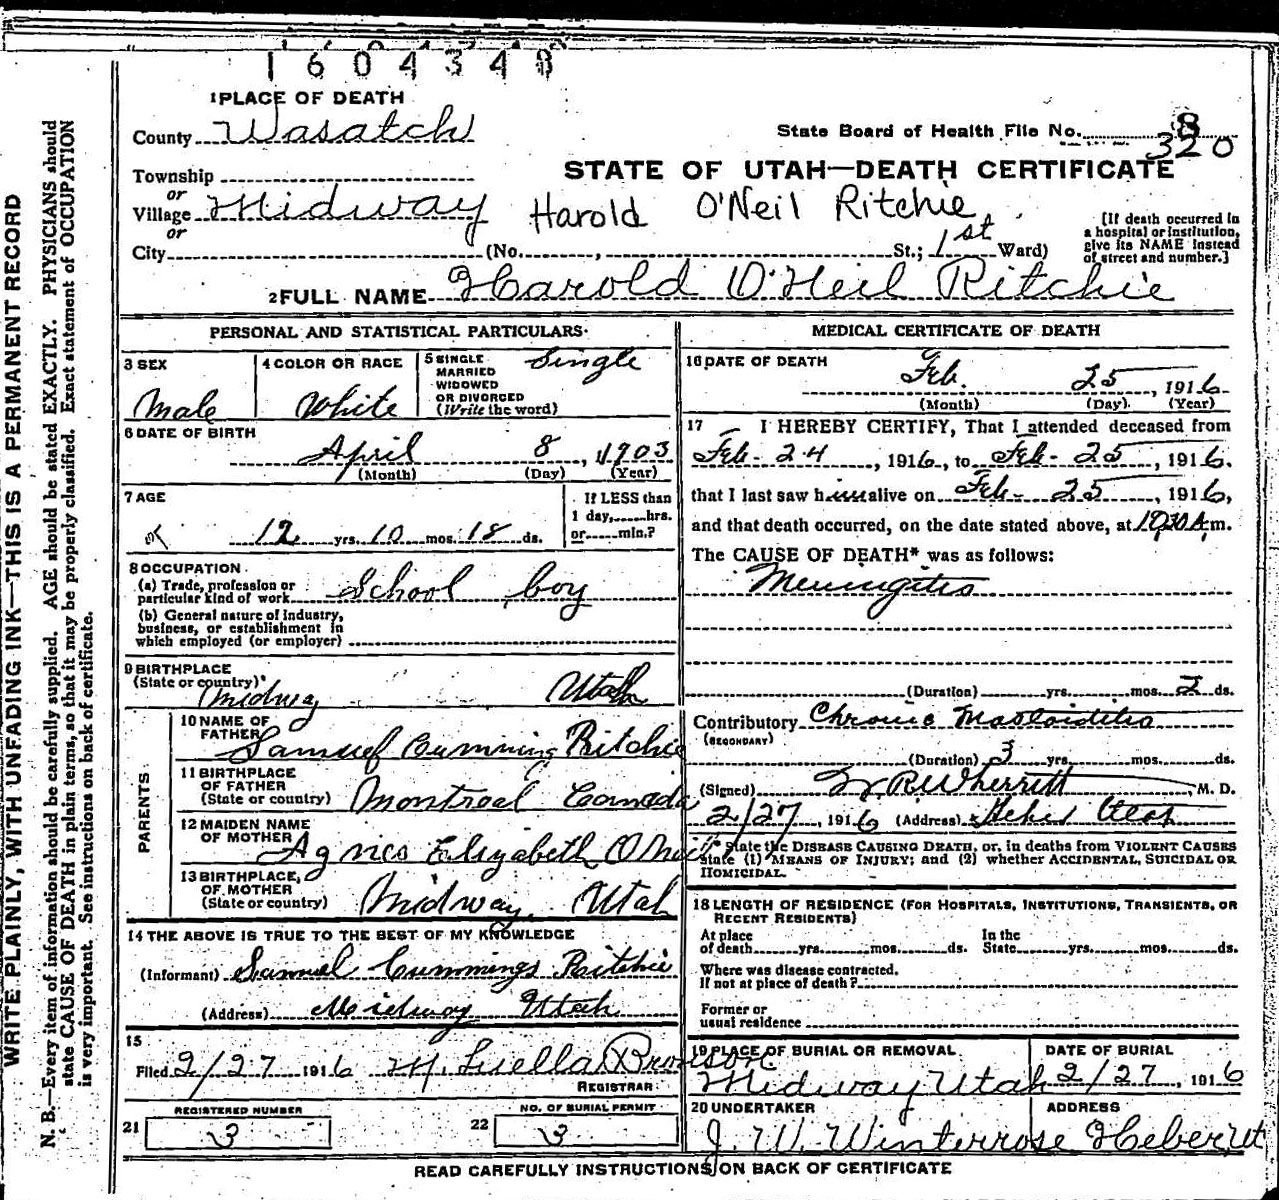 1604348
1 PLACE OF DEATH
County Wasatch
State Board of Health File No. 8
320
Township
STATE OF UTAH—DEATH CERTIFICATE
or
Village Midway
Harold O'Neil Ritchie
or
City (No. , St.; 1st Ward)
[If death occurred in
a hospital or institution,
give its NAME instead
of street and number.]
2 FULL NAME Harold O'Neil Ritchie
PERSONAL AND STATISTICAL PARTICULARS
3 SEX
Male
4 COLOR OR RACE
White
5 SINGLE
MARRIED
WIDOWED
OR DIVORCED
(Write the word)
Single
6 DATE OF BIRTH
April 8, 1903
(Month) (Day) (Year)
7 AGE
12 yrs. 10 mos. 18 ds.
If LESS than
1 day,.....hrs.
or.....min.?
8 OCCUPATION
(a) Trade, profession or
particular kind of work School boy
(b) General nature of industry,
business, or establishment in
which employed (or employer)
9 BIRTHPLACE
(State or country)
Midway Utah
PARENTS
10 NAME OF
FATHER
Samuel Cumming Ritchie
11 BIRTHPLACE
OF FATHER
(State or country) Montreal Canada
12 MAIDEN NAME
OF MOTHER
Agnes Elizabeth O'Neil
13 BIRTHPLACE,
OF MOTHER
(State or country) Midway, Utah
14 THE ABOVE IS TRUE TO THE BEST OF MY KNOWLEDGE
(Informant) Samuel Cummings Ritchie
(Address) Midway Utah
15
Filed 2/27 1916 M. Luella Bronson
REGISTRAR
21
REGISTERED NUMBER
3
22
NO. OF BURIAL PERMIT
3
MEDICAL CERTIFICATE OF DEATH
16 DATE OF DEATH
Feb. 25, 1916
(Month) (Day) (Year)
17 I HEREBY CERTIFY, That I attended deceased from
Feb. 24, 1916, to Feb. 25, 1916.
that I last saw him alive on Feb. 25, 1916,
and that death occurred, on the date stated above, at 10,30 A.m.
The CAUSE OF DEATH* was as follows:
Meningitis
(Duration) yrs. mos. 2 ds.
Contributory Chronic Mastoiditis
(SECONDARY)
(Duration) 3 yrs. mos. ds.
(Signed) R. Wherritt M. D.
2/27, 1916 (Address) Heber Utah
* State the DISEASE CAUSING DEATH, or, in deaths from VIOLENT CAUSES
state (1) MEANS OF INJURY; and (2) whether ACCIDENTAL, SUICIDAL OR
HOMICIDAL.
18 LENGTH OF RESIDENCE (FOR HOSPITALS, INSTITUTIONS, TRANSIENTS, OR
RECENT RESIDENTS)
At place
of death yrs. mos. ds.
In the
State yrs. mos. ds.
Where was disease contracted.
If not at place of death?
Former or
usual residence
19 PLACE OF BURIAL OR REMOVAL
Midway Utah
DATE OF BURIAL
2/27, 1916
20 UNDERTAKER
J. W. Winterrose
ADDRESS
Heber, Ut
READ CAREFULLY INSTRUCTIONS ON BACK OF CERTIFICATE
WRITE PLAINLY, WITH UNFADING INK—THIS IS A PERMANENT RECORD
N. B.—Every item of information should be carefully supplied. AGE should be stated EXACTLY. PHYSICIANS should
state CAUSE OF DEATH in plain terms, so that it may be properly classified. Exact statement of OCCUPATION
is very important. See instructions on back of certificate.